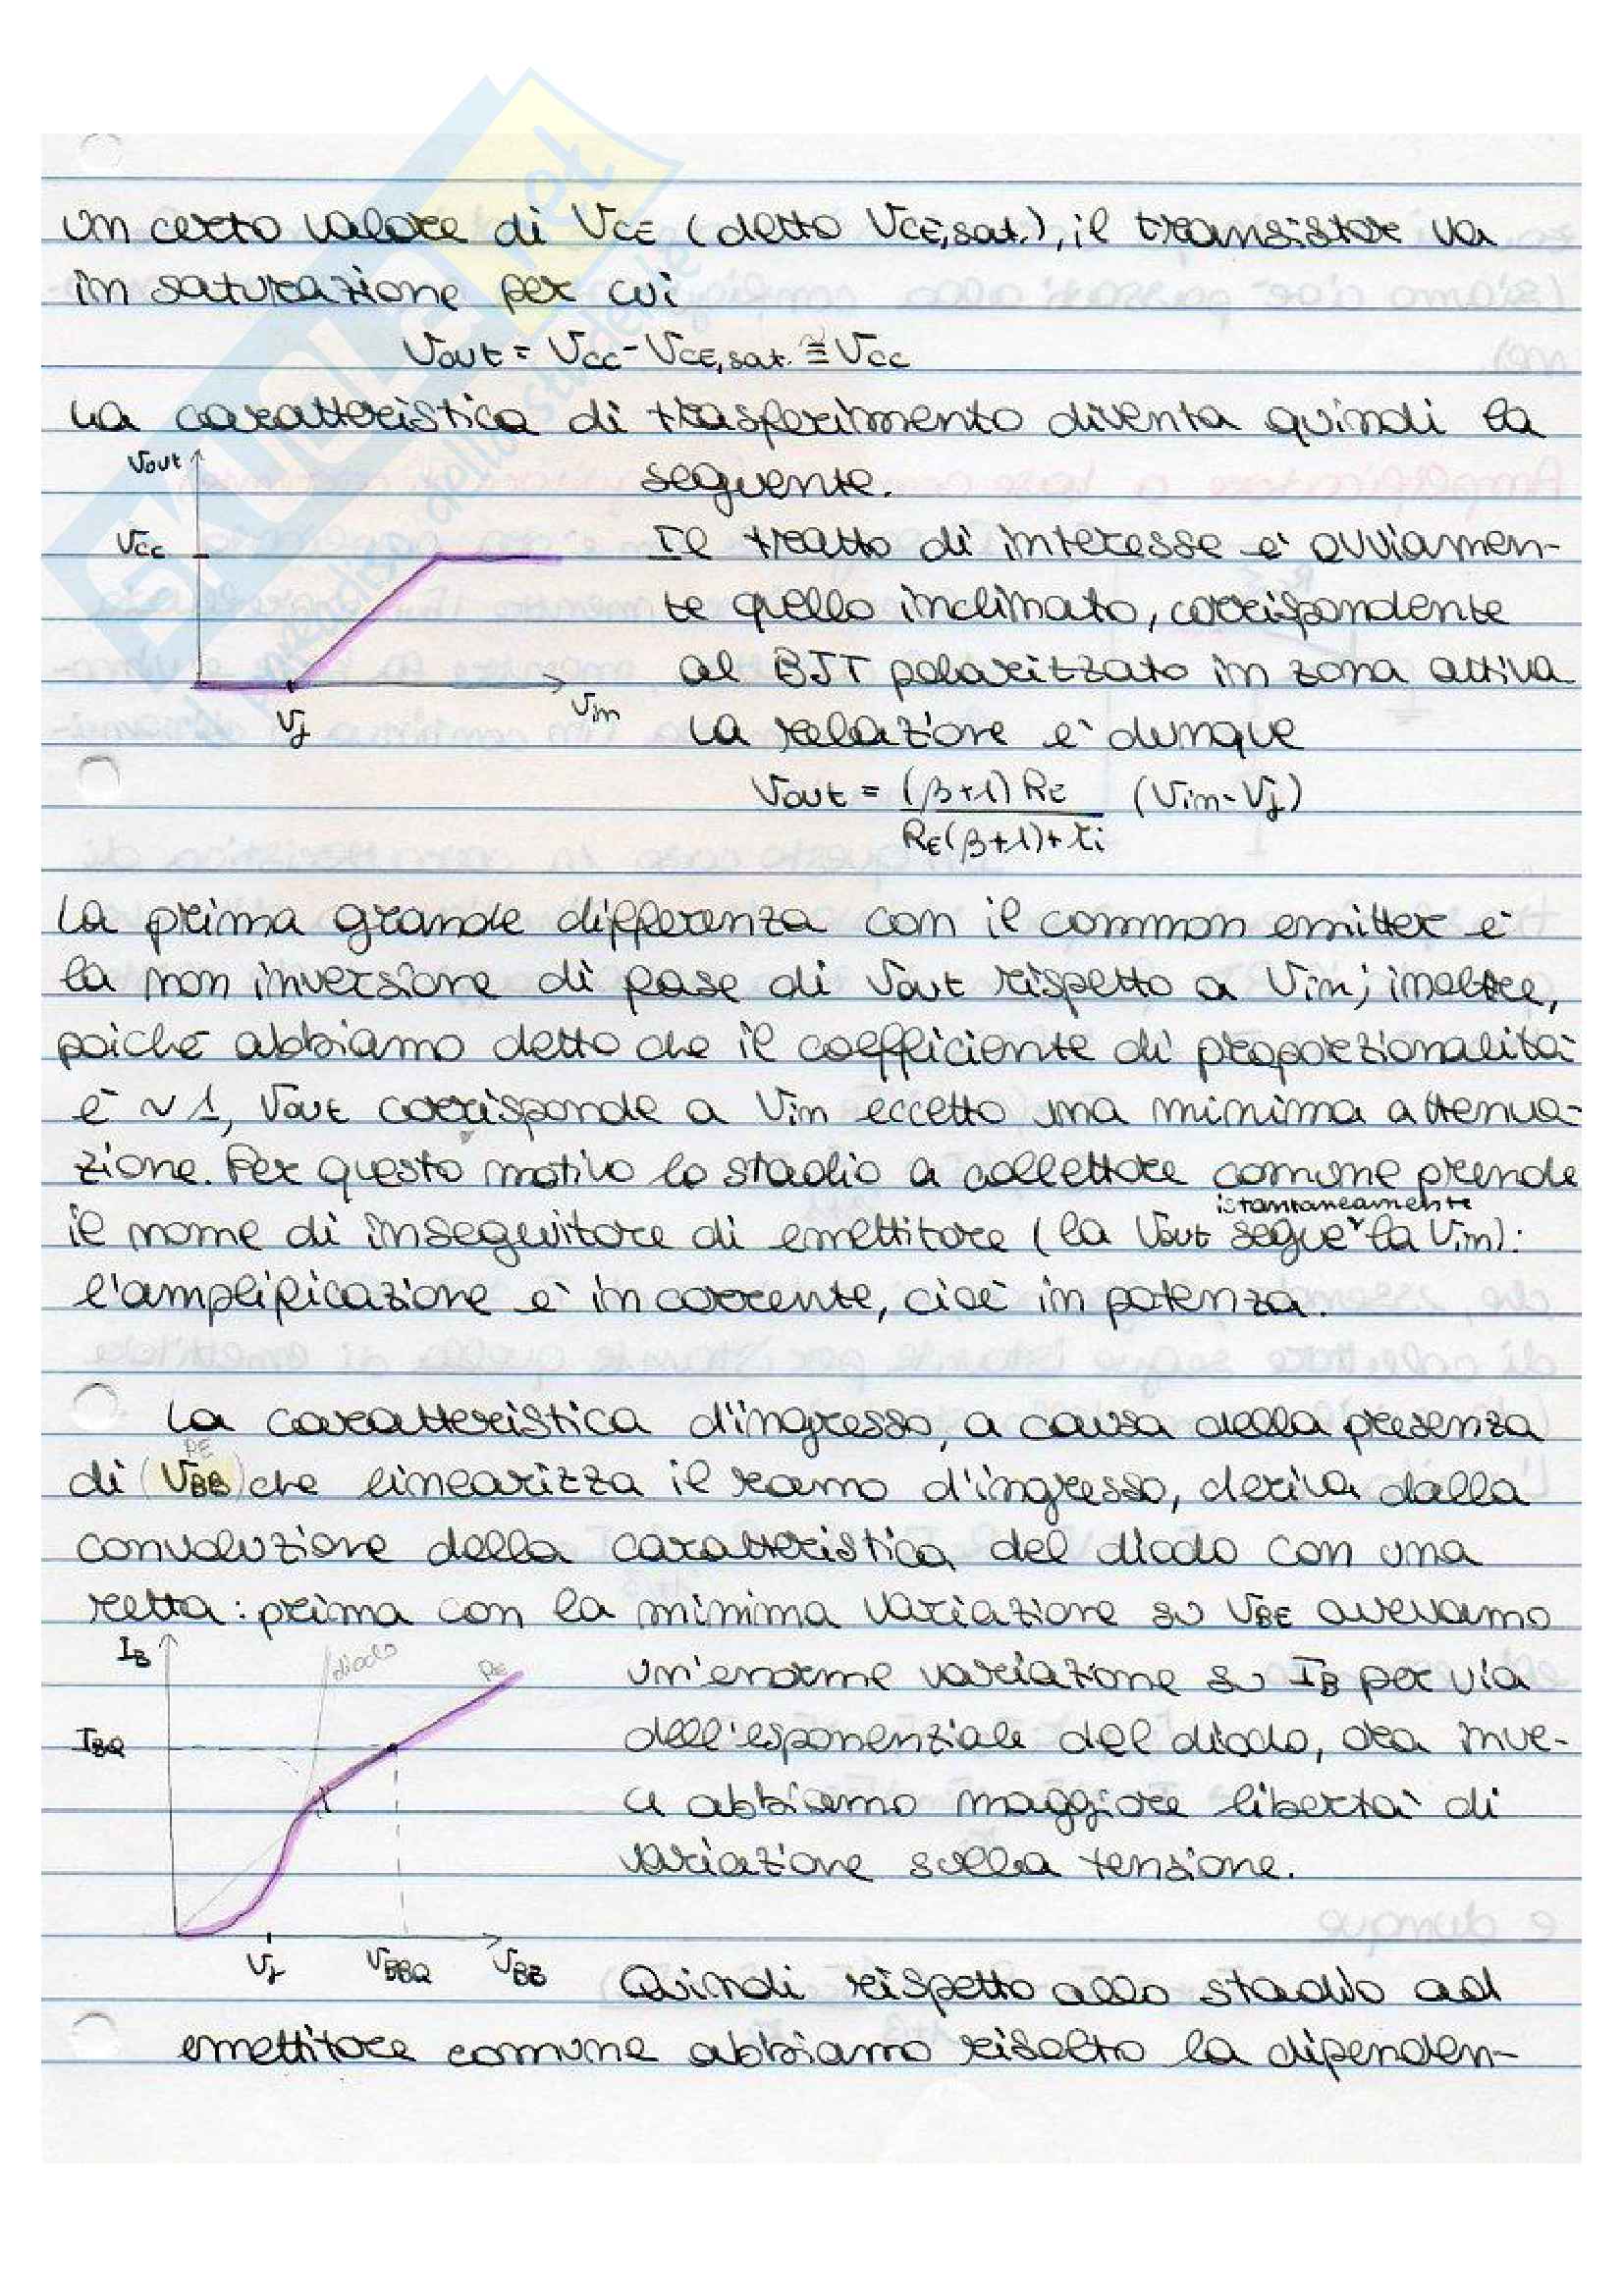 un certo valore di VCE (detto VCE,sat.), il transistore va
in saturazione per cui
Vout = VCC - VCE,sat. ≅ VCC
La caratteristica di trasferimento diventa quindi la
seguente.
Vout
VCC
Vγ
Vin
Il tratto di interesse è ovviamen-
te quello inclinato, corrispondente
al BJT polarizzato in zona attiva
La relazione è dunque
Vout = (β+1) RE / RE(β+1)+ri (Vin-Vγ)
La prima grande differenza con il common emitter è
la non inversione di fase di Vout rispetto a Vin; inoltre,
poiché abbiamo detto che il coefficiente di proporzionalità
è ~ 1, Vout corrisponde a Vin eccetto una minima attenua-
zione. Per questo motivo lo stadio a collettore comune prende
istantaneamente
il nome di inseguitore di emettitore (la Vout segue la Vin):
l'amplificazione è in corrente, cioè in potenza.
La caratteristica d'ingresso, a causa della presenza
RE
di (VBB) che linearizza il ramo d'ingresso, deriva dalla
convoluzione della caratteristica del diodo con una
retta: prima con la minima variazione su VBE avevamo
IB
diodo
RE
IBQ
Vγ
VBBQ
VBB
un'enorme variazione su IB per via
dell'esponenziale del diodo, ora inve-
ce abbiamo maggiore libertà di
variazione sulla tensione.
Quindi rispetto allo stadio ad
emettitore comune abbiamo risolto la dipenden-
SKUOLA.net